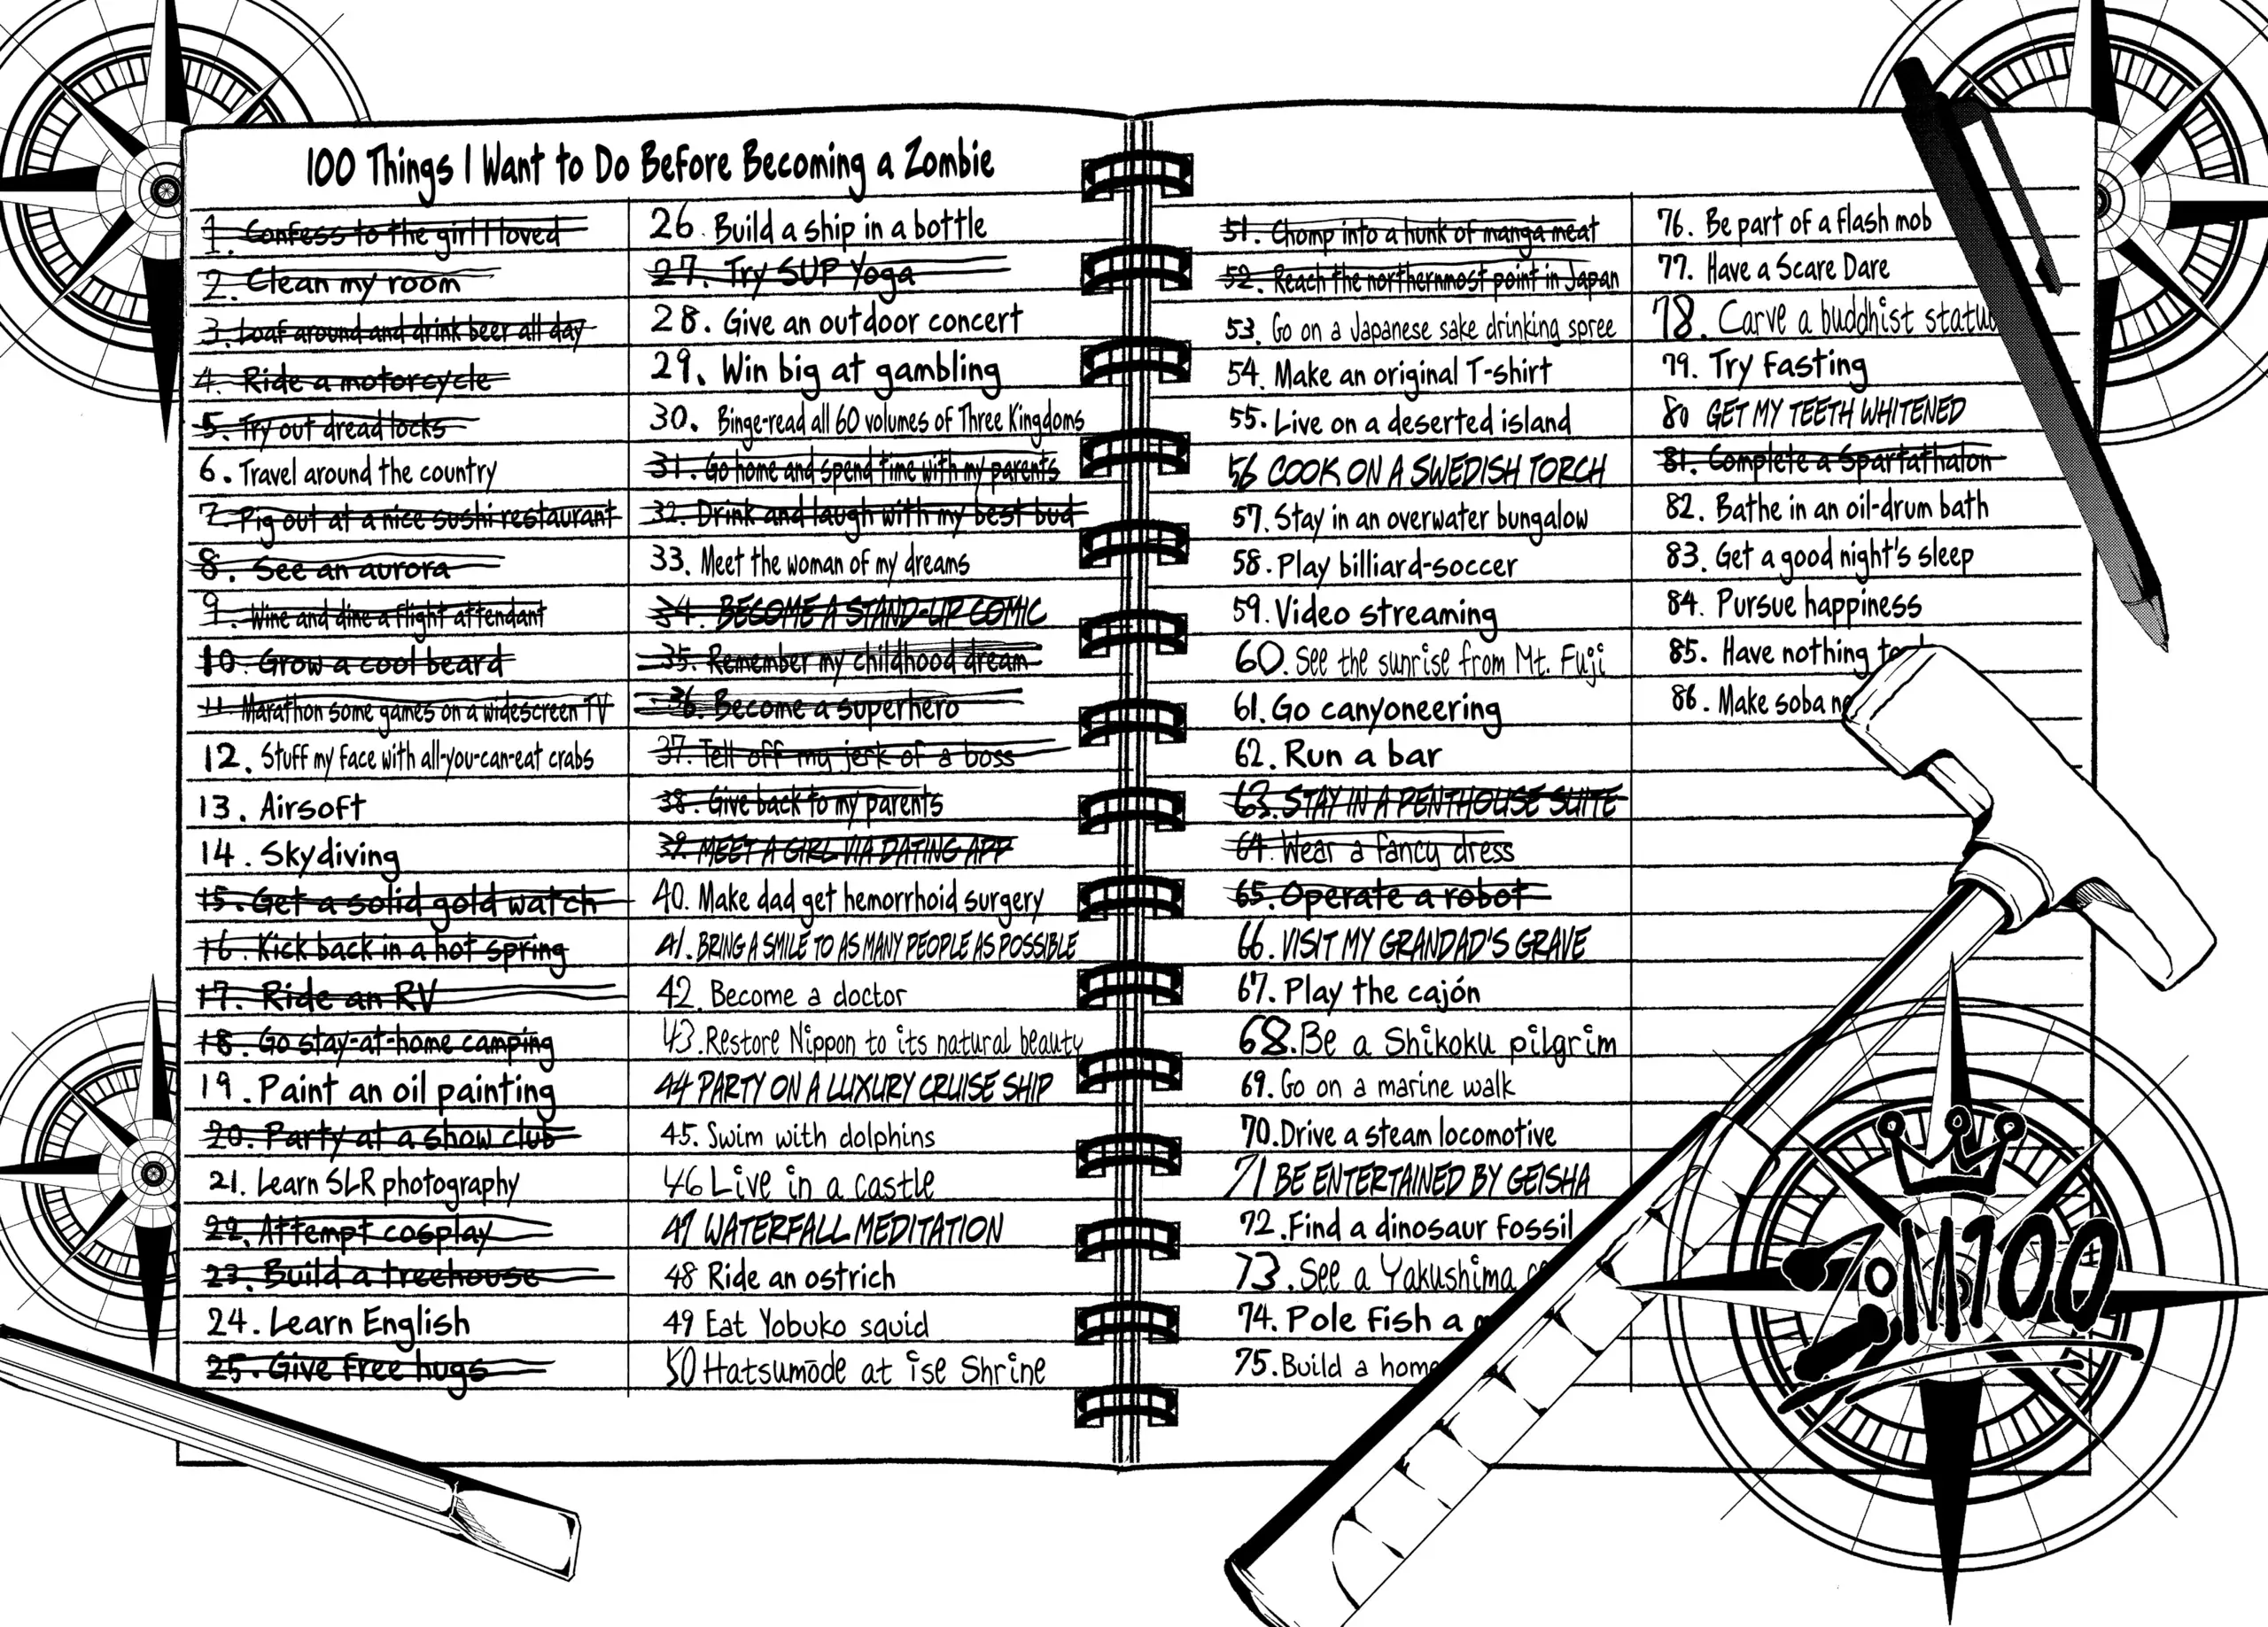 100 Things I Want to Do Before Becoming a Zombie
1. Confess to the girl I loved
2. Clean my room
3. Loaf around and drink beer all day
4. Ride a motorcycle
5. Try out dreadlocks
6. Travel around the country
7. Pig out at a nice sushi restaurant
8. See an aurora
9. Wine and dine a flight attendant
10. Grow a cool beard
11. Marathon some games on a widescreen TV
12. Stuff my face with all-you-can-eat crabs
13. Airsoft
14. Skydiving
15. Get a solid gold watch
16. Kick back in a hot spring
17. Ride an RV
18. Go stay-at-home camping
19. Paint an oil painting
20. Party at a show club
21. Learn SLR photography
22. Attempt cosplay
23. Build a treehouse
24. Learn English
25. Give free hugs
26. Build a ship in a bottle
27. Try SUP Yoga
28. Give an outdoor concert
29. Win big at gambling
30. Binge-read all 60 volumes of Three Kingdoms
31. Go home and spend time with my parents
32. Drink and laugh with my best bud
33. Meet the woman of my dreams
34. BECOME A STAND-UP COMIC
35. Remember my childhood dream
36. Become a superhero
37. Tell off my jerk of a boss
38. Give back to my parents
39. MEET A GIRL VIA DATING APP
40. Make dad get hemorrhoid surgery
41. BRING A SMILE TO AS MANY PEOPLE AS POSSIBLE
42. Become a doctor
43. Restore Nippon to its natural beauty
44 PARTY ON A LUXURY CRUISE SHIP
45. Swim with dolphins
46 Live in a castle
47 WATERFALL MEDITATION
48 Ride an ostrich
49 Eat Yobuko squid
50 Hatsumōde at ise Shrine
51. Chomp into a hunk of manga meat
52. Reach the northernmost point in Japan
53. Go on a Japanese sake drinking spree
54. Make an original T-shirt
55. Live on a deserted island
56 COOK ON A SWEDISH TORCH
57. Stay in an overwater bungalow
58. Play billiard-soccer
59. Video streaming
60. See the sunrise from Mt. Fuji
61. Go canyoneering
62. Run a bar
63. STAY IN A PENTHOUSE SUITE
64. Wear a fancy dress
65. Operate a robot
66. VISIT MY GRANDAD'S GRAVE
67. Play the cajón
68. Be a Shikoku pilgrim
69. Go on a marine walk
70. Drive a steam locomotive
71 BE ENTERTAINED BY GEISHA
72. Find a dinosaur fossil
73. See a Yakushima
74. Pole fish a
75. Build a home
76. Be part of a flash mob
77. Have a Scare Dare
78. Carve a buddhist statu
79. Try fasting
80 GET MY TEETH WHITENED
81. Complete a Spartathalon
82. Bathe in an oil-drum bath
83. Get a good night's sleep
84. Pursue happiness
85. Have nothing to
86. Make soba
ZOM100